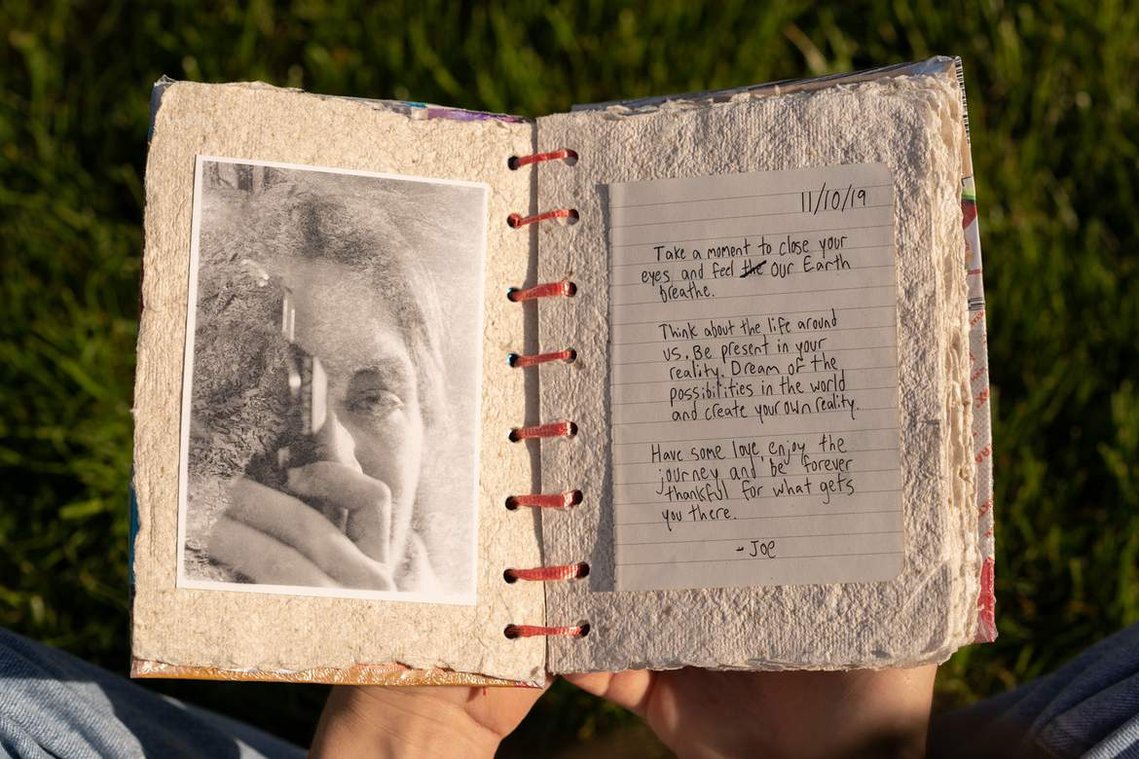 11/10/19
Take a moment to close your
eyes and feel the our Earth
breathe.
Think about the life around
us. Be present in your
reality. Dream of the
possibilities in the world
and create your own reality.
Have some love, enjoy the
journey and be forever
thankful for what gets
you there.
- Joe